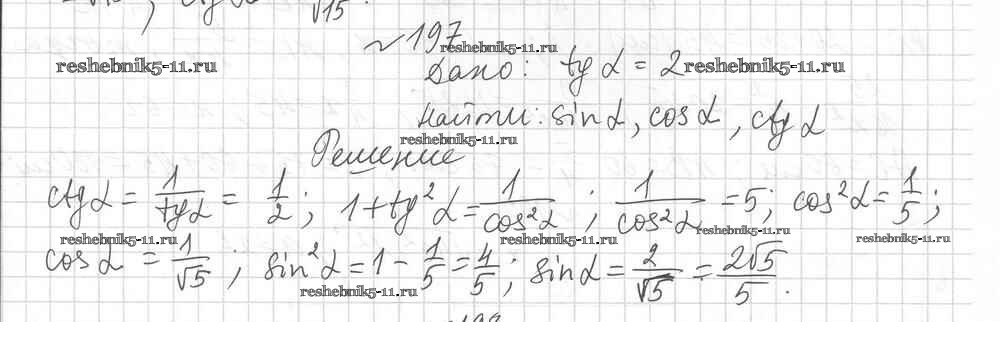 √15
~197
reshebnik5-11.ru
reshebnik5-11.ru Дано: tg α = 2 reshebnik5-11.ru
найти: sin α, cos α, ctg α
reshebnik5-11.ru
Решение
ctg α = 1/tg α = 1/2; 1 + tg² α = 1/cos² α; 1/cos² α = 5; cos² α = 1/5;
reshebnik5-11.ru reshebnik5-11.ru reshebnik5-11.ru reshebnik5-11.ru
cos α = 1/√5; sin² α = 1 - 1/5 = 4/5; sin α = 2/√5 = 2√5/5.
reshebnik5-11.ru